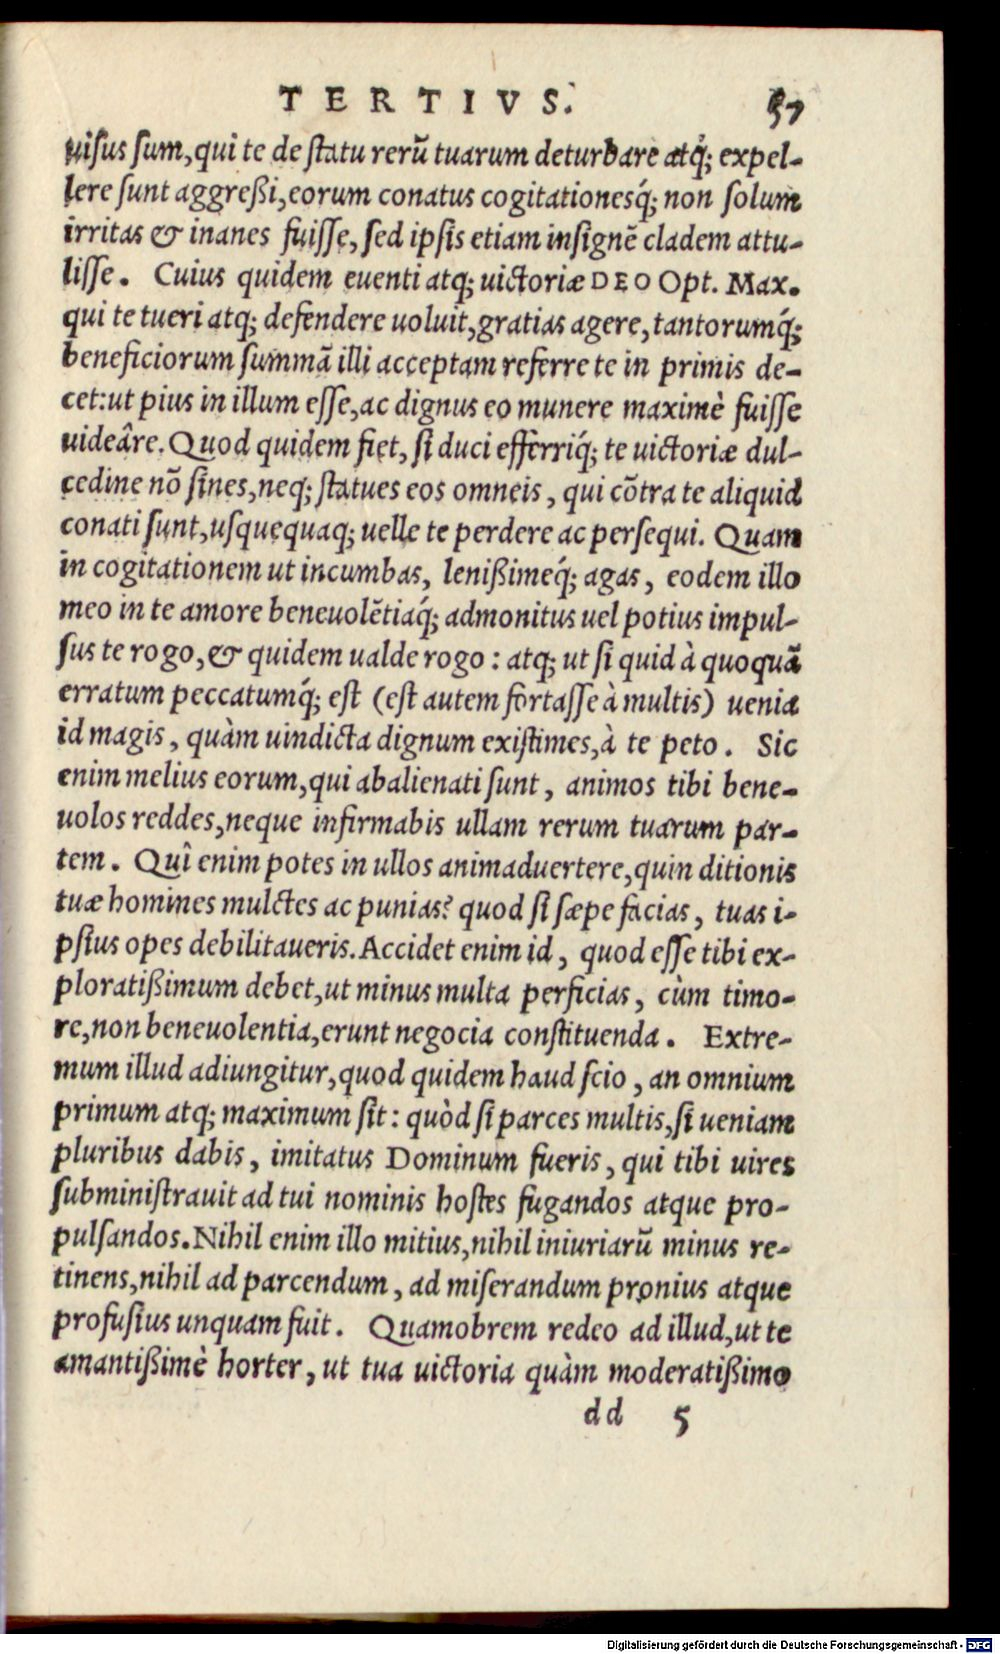 TERTIVS. 57
uisus sum, qui te de statu rerũ tuarum deturbare atq́; expel-
lere sunt aggreßi, eorum conatus cogitationesq́; non solum
irritas & inanes fuisse, sed ipsis etiam insignẽ cladem attu-
lisse. Cuius quidem euenti atq; uictoriæ DEO Opt. Max.
qui te tueri atq; defendere uoluit, gratias agere, tantorumq́;
beneficiorum summã illi acceptam referre te in primis de-
cet: ut pius in illum esse, ac dignus eo munere maximè fuisse
uideâre. Quod quidem fiet, si duci efferriq́; te uictoriæ dul-
cedine nõ sines, neq; statues eos omneis, qui cõtra te aliquid
conati sunt, usquequaq; uelle te perdere ac persequi. Quam
in cogitationem ut incumbas, lenißimeq́; agas, eodem illo
meo in te amore beneuolẽtiaq́; admonitus uel potius impul-
sus te rogo, & quidem ualde rogo: atq; ut si quid à quoquã
erratum peccatumq́; est (est autem fortasse à multis) uenia
id magis, quàm uindicta dignum existimes, à te peto. Sic
enim melius eorum, qui abalienati sunt, animos tibi bene-
uolos reddes, neque infirmabis ullam rerum tuarum par-
tem. Quî enim potes in ullos animaduertere, quin ditionis
tuæ homines mulctes ac punias? quod si sæpe facias, tuas i-
psius opes debilitaueris. Accidet enim id, quod esse tibi ex-
ploratißimum debet, ut minus multa perficias, cùm timo-
re, non beneuolentia, erunt negocia constituenda. Extre-
mum illud adiungitur, quod quidem haud scio, an omnium
primum atq; maximum sit: quòd si parces multis, si ueniam
pluribus dabis, imitatus Dominum fueris, qui tibi uires
subministrauit ad tui nominis hostes fugandos atque pro-
pulsandos. Nihil enim illo mitius, nihil iniuriarũ minus re-
tinens, nihil ad parcendum, ad miserandum pronius atque
profusius unquam fuit. Quamobrem redeo ad illud, ut te
amantißimè horter, ut tua uictoria quàm moderatißimo
dd 5
Digitalisierung gefördert durch die Deutsche Forschungsgemeinschaft - DFG